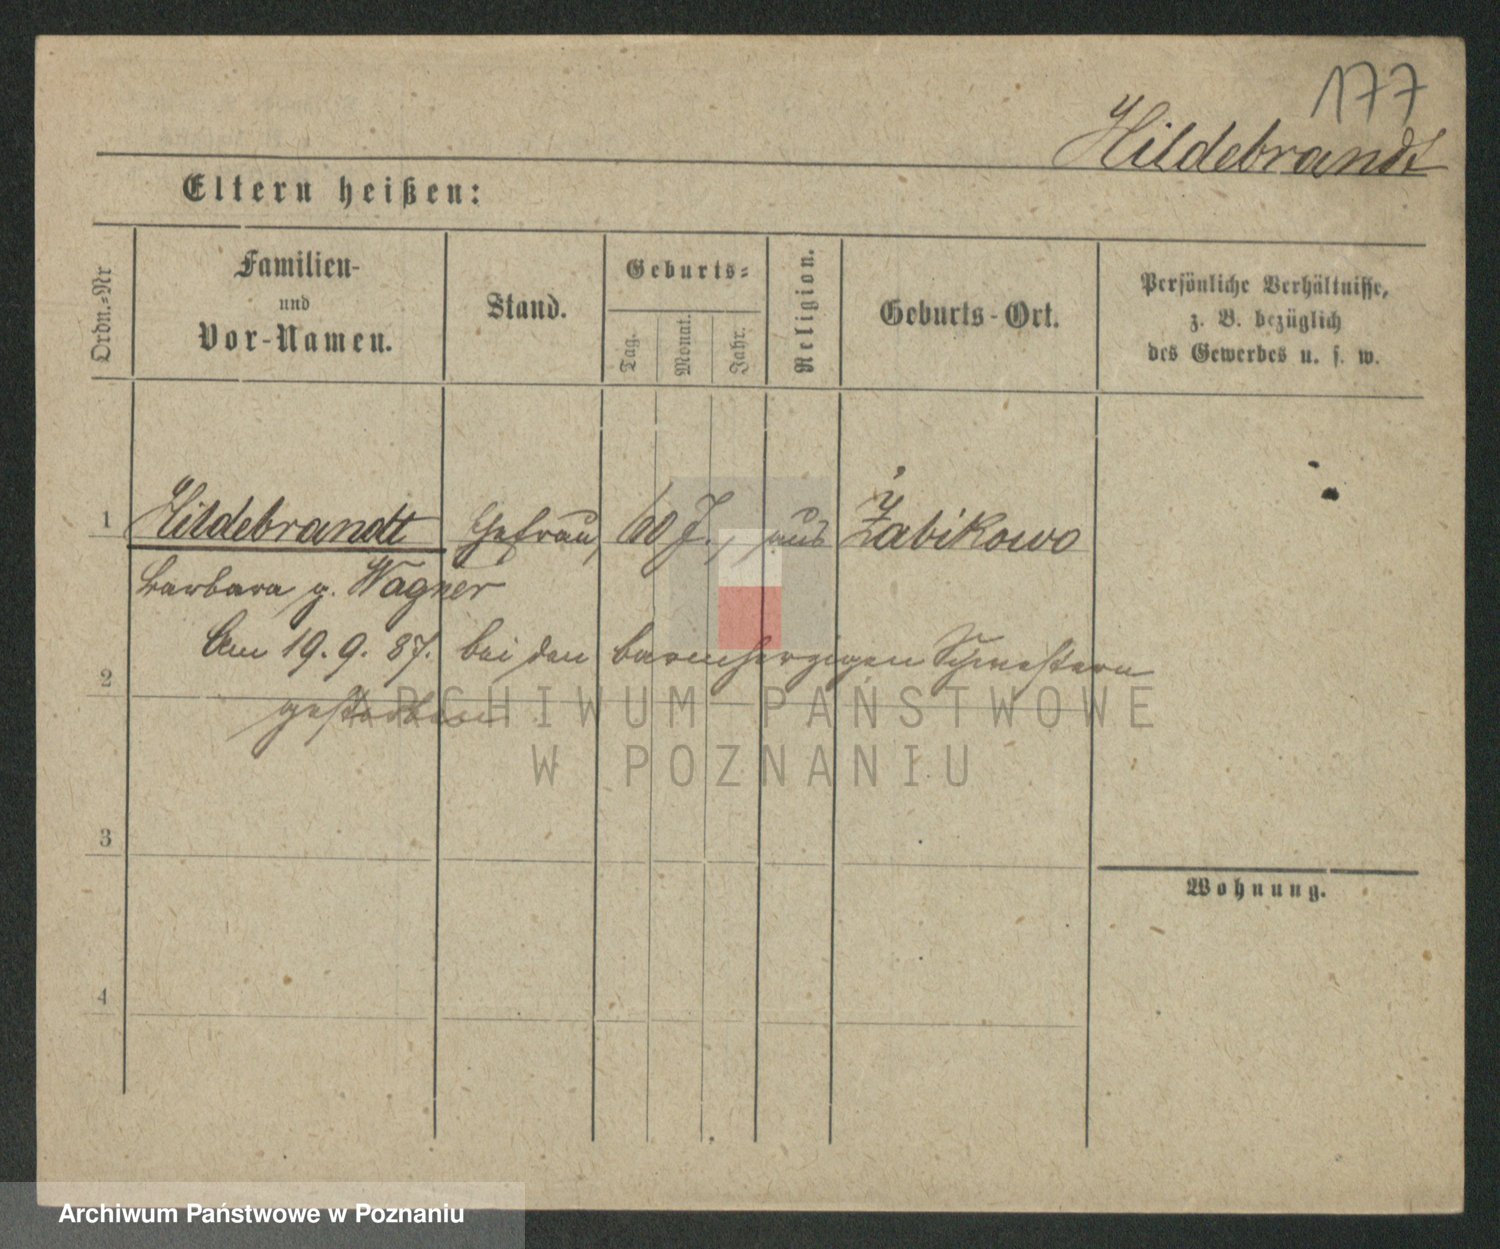 177
Hildebrandt
Eltern heißen:
Ordn.-Nr
Familien-
und
Vor-Namen.
Stand.
Geburts-
Tag.
Monat.
Jahr.
Religion.
Geburts-Ort.
Persönliche Verhältnisse,
z. B. bezüglich
des Gewerbes u. s. w.
1 Hildebrandt Ehefrau, 60 J., aus Żabikowo
Barbara g. Wagner
Am 19. 9. 87. bei den barmherzigen Schwestern
2
gestorben
ARCHIWUM PAŃSTWOWE
W POZNANIU
3
Wohnung.
4
Archiwum Państwowe w Poznaniu